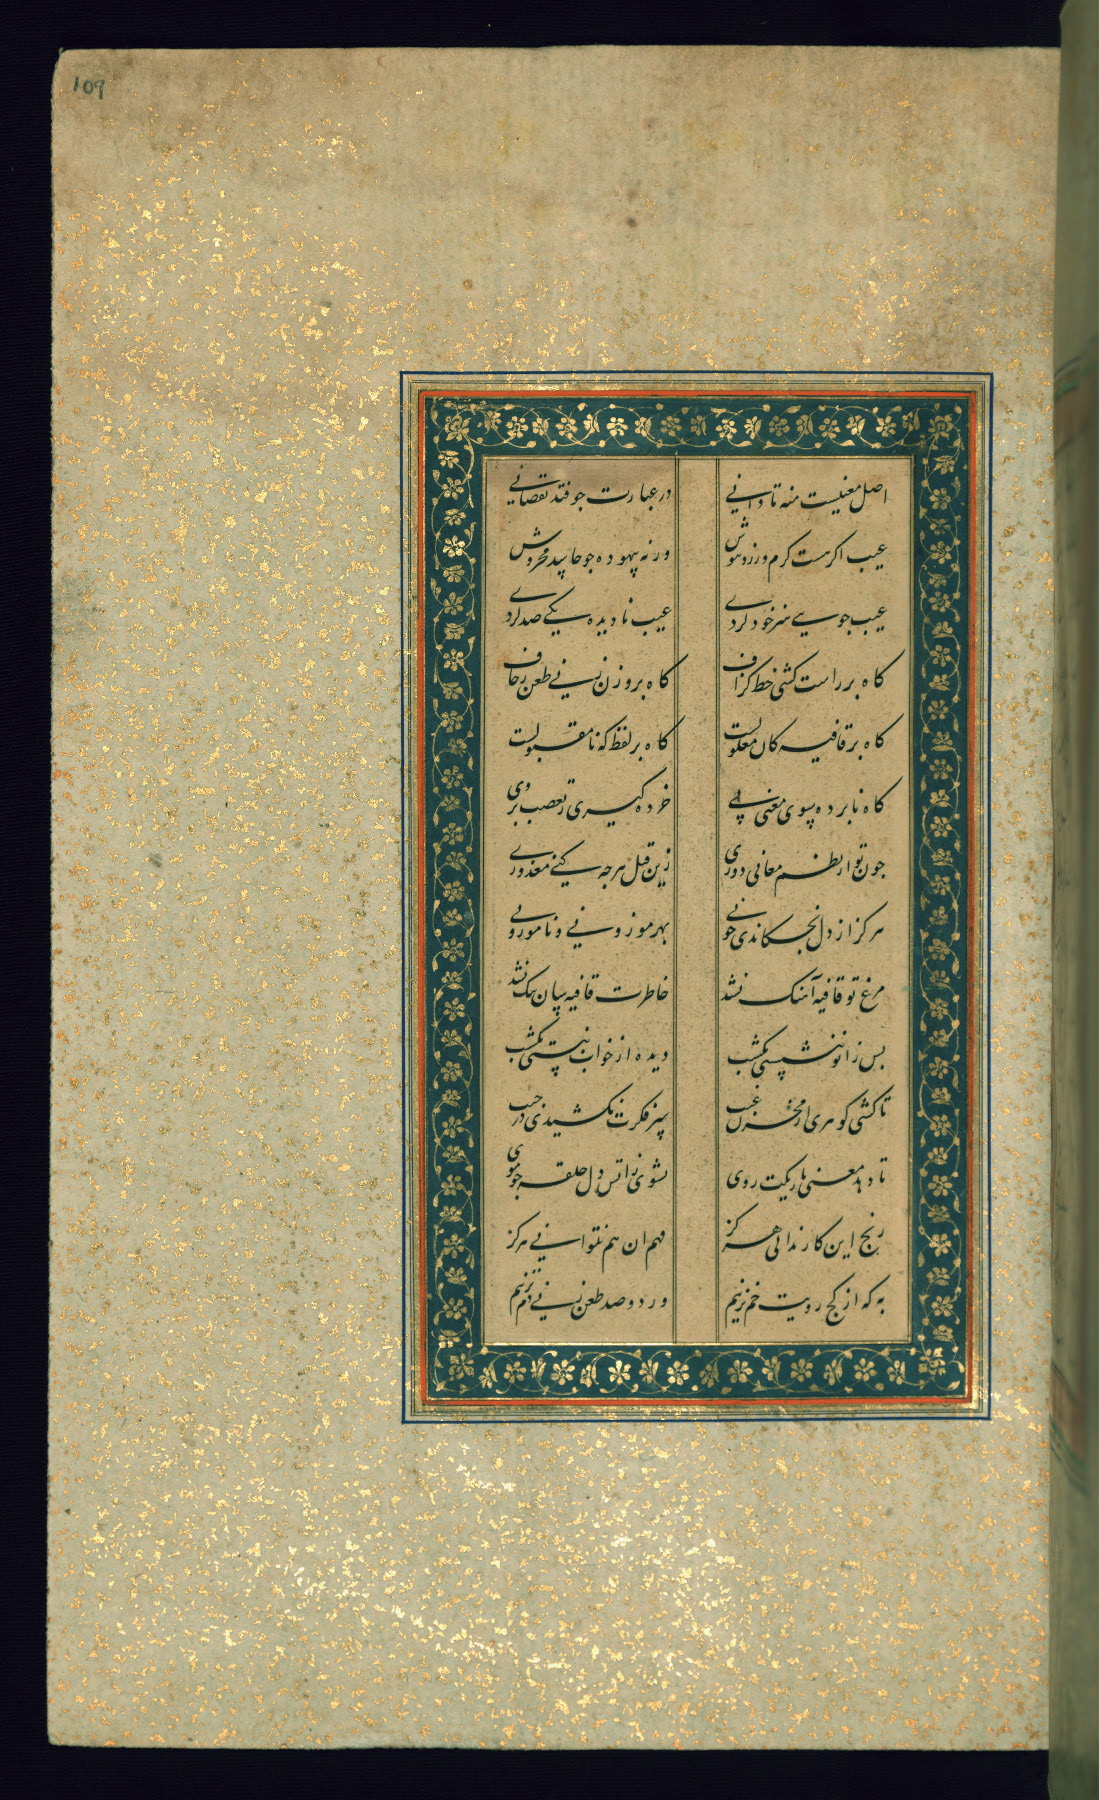 109
اصل معنیست منه تا دانی در عبارت جو فتد نقصانی
عیب اکر هست کرم ورز و بپوش ورنه بیهوده جو حاسد مخروش
عیب جویی هنر خود کردی عیب نادیده یکی صد کردی
کاه بر راست کشی خط کزاف کاه بر وزن زنی طعن زحاف
کاه بر قافیه کان معلولست کاه بر لفظ که نامقبولست
کاه نابرده پسوی معنی پی خرده کیری ز تعصب بر وی
جون تو از نظم معانی دوری زین قبل هر جه کنی معذوری
هرکز از دل نجکاندی خونی بهر موزونی و ناموزونی
مرغ تو قافیه آهنک نشد خاطرت قافیه سان تنک نشد
بس زانو ننشستی یکشب دیده از خواب نبستی یکشب
تا کشی کوهری از مخزن غیب سر فکرت نکشیدی در جیب
تا دهد معنی باریکت روی نشوی ز آتش دل حلقه جو موی
رنج این کار ندانی هرکز فهم آن هم نتوانی هرکز
به که از کج رویت خم نزنیم ور دو صد طعن زنی دم نزنیم